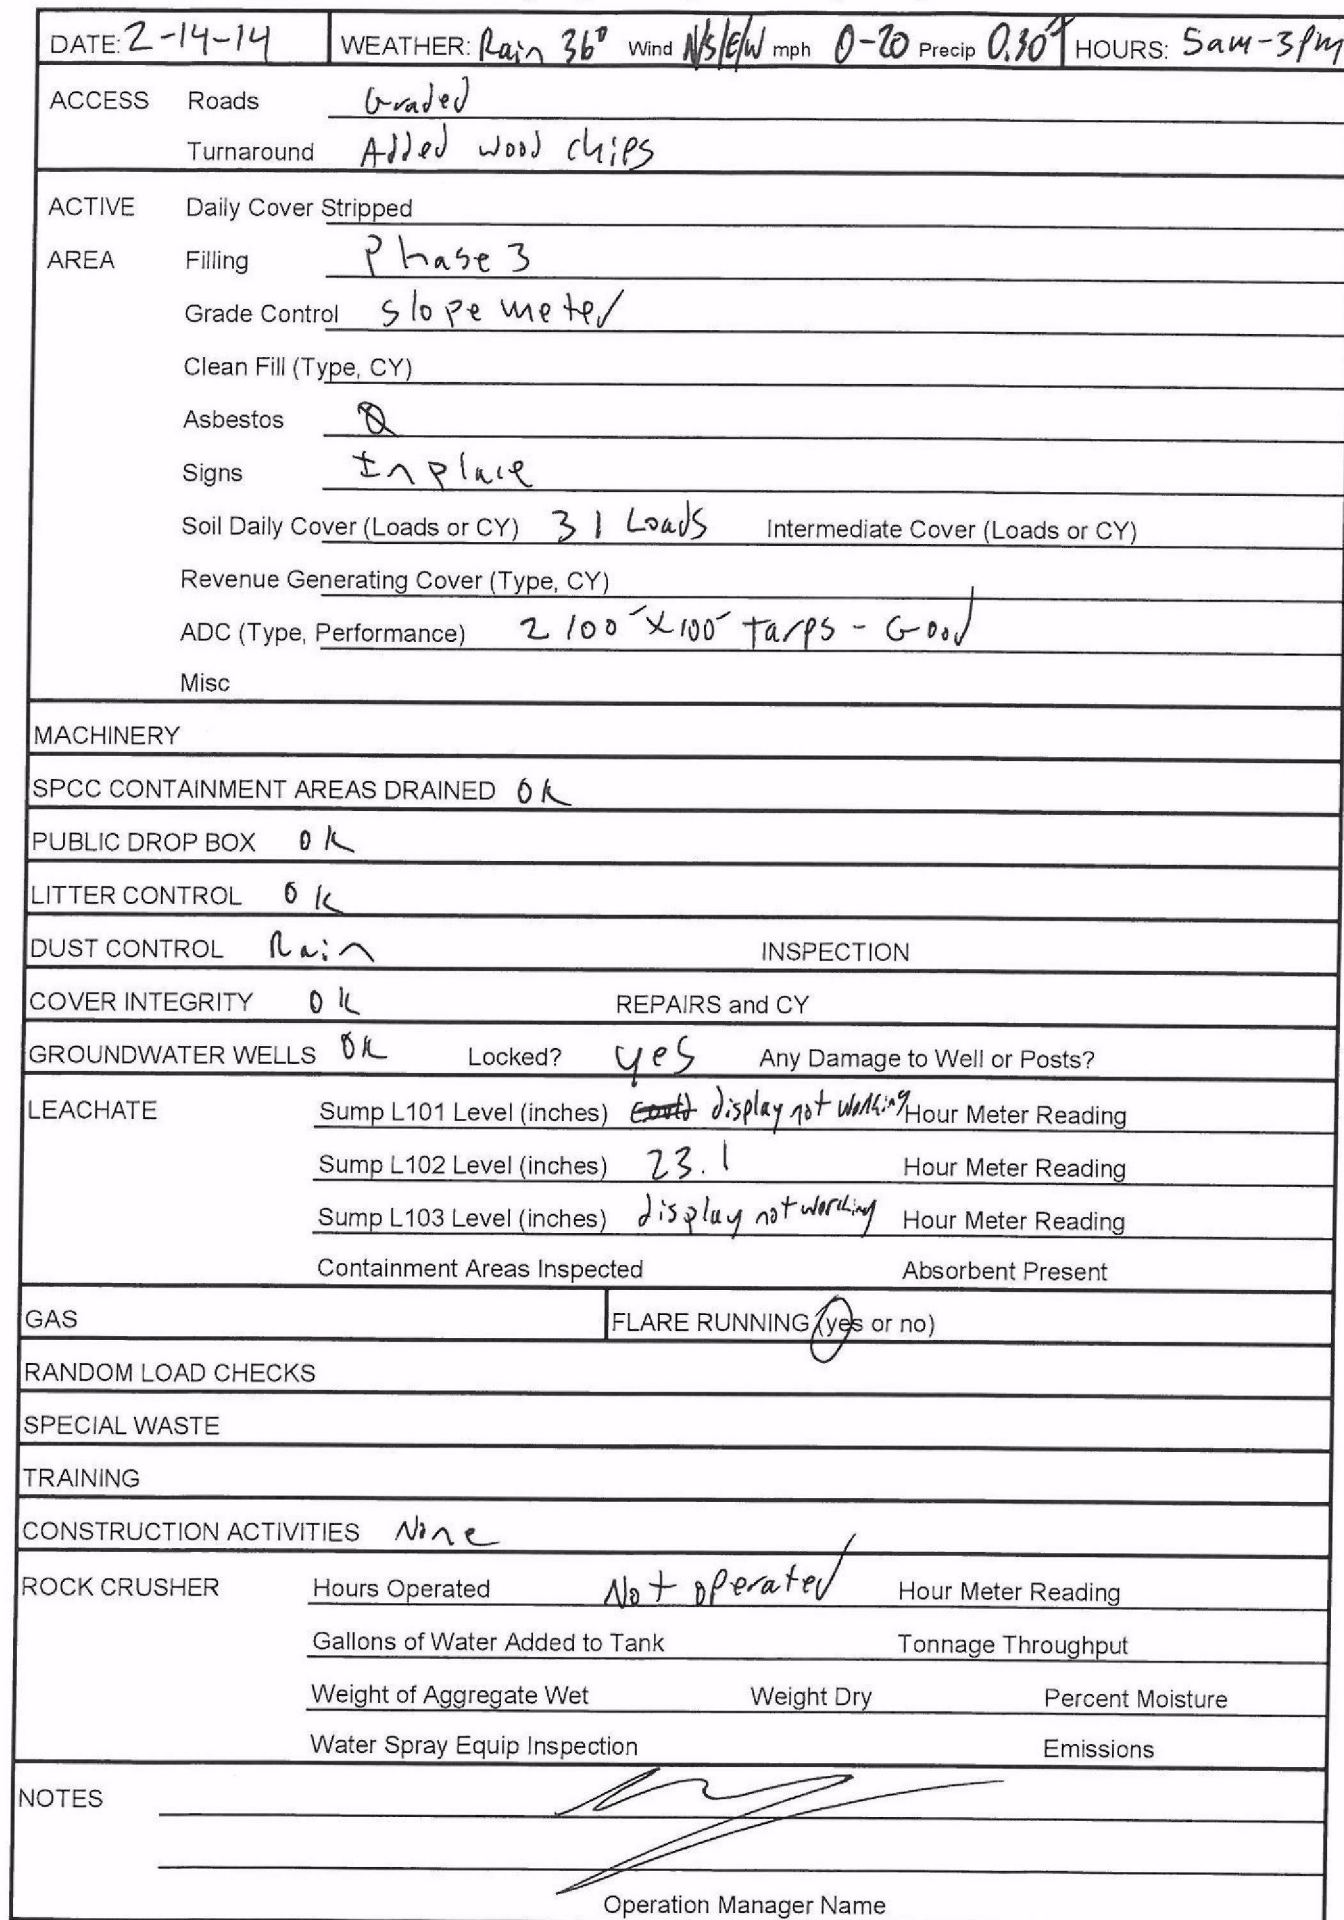 DATE: 2-14-14 WEATHER: Rain 36° Wind N/S/E/W mph 0-20 Precip 0.30" HOURS: 5am-3pm
ACCESS Roads Graded
Turnaround Added wood chips
ACTIVE Daily Cover Stripped
AREA Filling Phase 3
Grade Control slope meter
Clean Fill (Type, CY)
Asbestos 0
Signs In place
Soil Daily Cover (Loads or CY) 31 Loads Intermediate Cover (Loads or CY)
Revenue Generating Cover (Type, CY)
ADC (Type, Performance) 2 100'x100' tarps - Good
Misc
MACHINERY
SPCC CONTAINMENT AREAS DRAINED OK
PUBLIC DROP BOX OK
LITTER CONTROL OK
DUST CONTROL Rain INSPECTION
COVER INTEGRITY OK REPAIRS and CY
GROUNDWATER WELLS OK Locked? yes Any Damage to Well or Posts?
LEACHATE Sump L101 Level (inches) display not working Hour Meter Reading
Sump L102 Level (inches) 23.1 Hour Meter Reading
Sump L103 Level (inches) display not working Hour Meter Reading
Containment Areas Inspected Absorbent Present
GAS FLARE RUNNING (yes or no)
RANDOM LOAD CHECKS
SPECIAL WASTE
TRAINING
CONSTRUCTION ACTIVITIES None
ROCK CRUSHER Hours Operated Not operated Hour Meter Reading
Gallons of Water Added to Tank Tonnage Throughput
Weight of Aggregate Wet Weight Dry Percent Moisture
Water Spray Equip Inspection Emissions
NOTES
Operation Manager Name